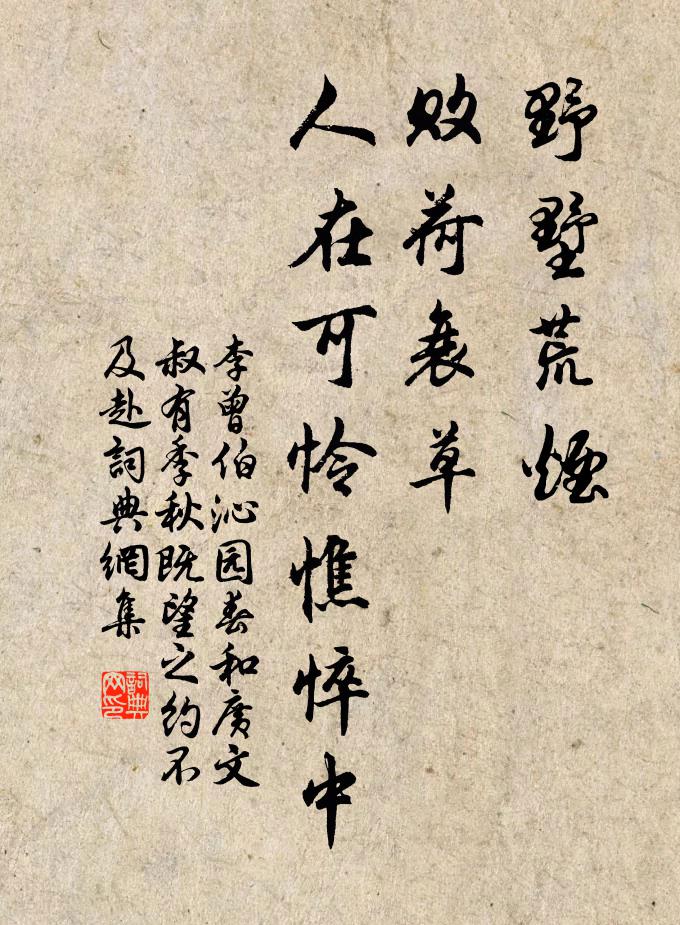 野墅荒煙
敗荷衰草
人在可怜憔悴中
李曾伯沁园春和廣文
叔有季秋既望之约不
及赴詞典網集
詞典
网印